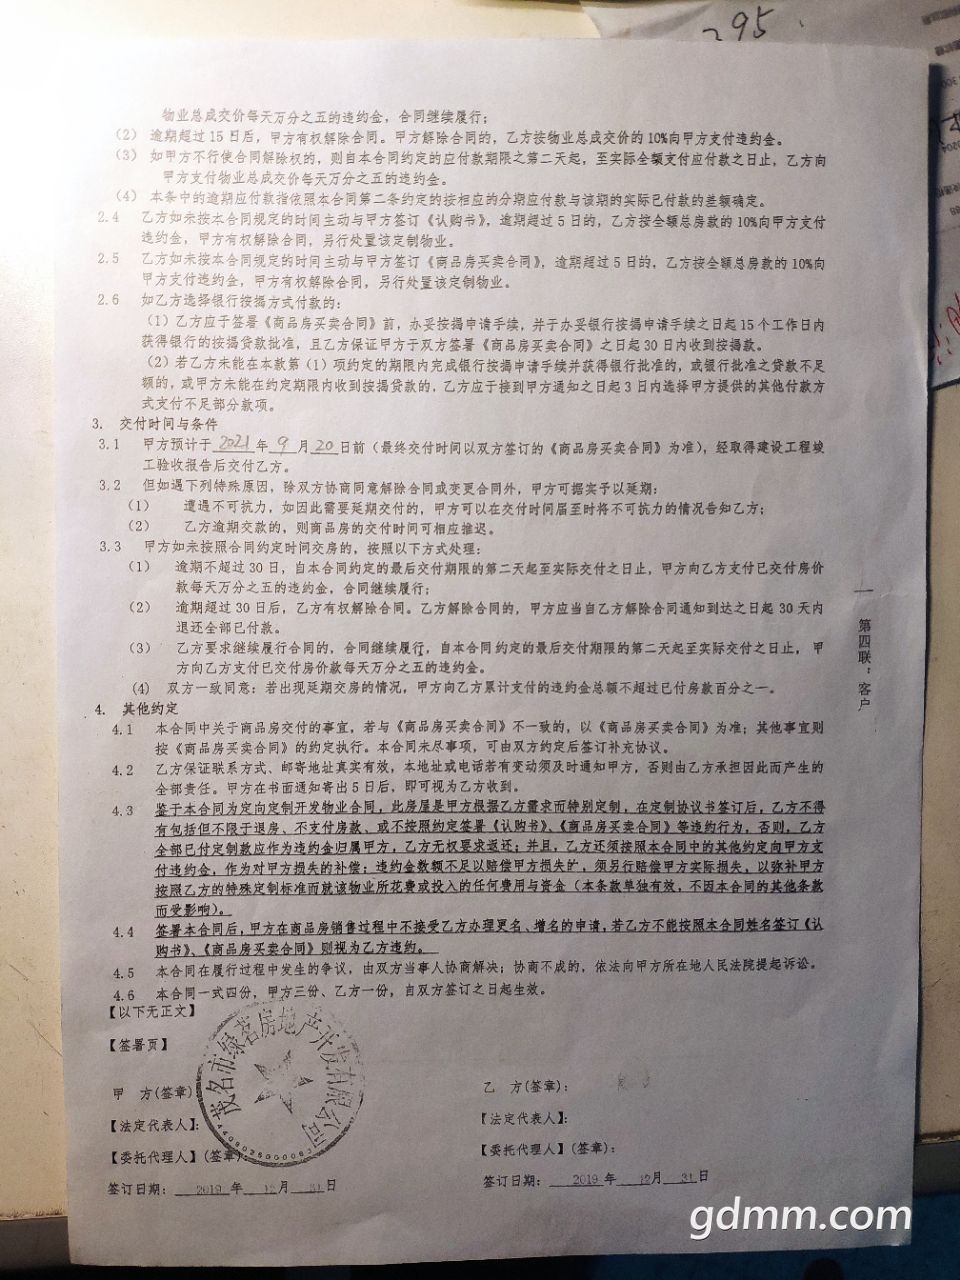 295
物业总成交价每天万分之五的违约金，合同继续履行；
（2） 逾期超过 15 日后，甲方有权解除合同。甲方解除合同的，乙方按物业总成交价的 10%向甲方支付违约金。
（3） 如甲方不行使合同解除权的，则自本合同约定的应付款期限之第二天起，至实际全额支付应付款之日止，乙方向
甲方支付物业总成交价每天万分之五的违约金。
（4） 本条中的逾期应付款指依照本合同第二条约定的按相应的分期应付款与该期的实际已付款的差额确定。
2.4 乙方如未按本合同规定的时间主动与甲方签订《认购书》，逾期超过 5 日的，乙方按全额总房款的 10%向甲方支付
违约金，甲方有权解除合同，另行处置该定制物业。
2.5 乙方如未按本合同规定的时间主动与甲方签订《商品房买卖合同》，逾期超过 5 日的，乙方按全额总房款的 10%向
甲方支付违约金，甲方有权解除合同，另行处置该定制物业。
2.6 如乙方选择银行按揭方式付款的：
（1）乙方应于签署《商品房买卖合同》前，办妥按揭申请手续，并于办妥银行按揭申请手续之日起 15 个工作日内
获得银行的按揭贷款批准，且乙方保证甲方于双方签署《商品房买卖合同》之日起 30 日内收到按揭款。
（2）若乙方未能在本款第（1）项约定的期限内完成银行按揭申请手续并获得银行批准的，或银行批准之贷款不足
额的，或甲方未能在约定期限内收到按揭贷款的，乙方应于接到甲方通知之日起 3 日内选择甲方提供的其他付款方
式支付不足部分款项。
3. 交付时间与条件
3.1 甲方预计于 2021 年 9 月 20 日前（最终交付时间以双方签订的《商品房买卖合同》为准），经取得建设工程竣
工验收报告后交付乙方。
3.2 但如遇下列特殊原因，除双方协商同意解除合同或变更合同外，甲方可据实予以延期：
（1） 遭遇不可抗力，如因此需要延期交付的，甲方可以在交付时间届至时将不可抗力的情况告知乙方；
（2） 乙方逾期交款的，则商品房的交付时间可相应推迟。
3.3 甲方如未按照合同约定时间交房的，按照以下方式处理：
（1） 逾期不超过 30 日，自本合同约定的最后交付期限的第二天起至实际交付之日止，甲方向乙方支付已交付房价
款每天万分之五的违约金，合同继续履行；
（2） 逾期超过 30 日后，乙方有权解除合同。乙方解除合同的，甲方应当自乙方解除合同通知到达之日起 30 天内
退还全部已付款。
（3） 乙方要求继续履行合同的，合同继续履行，自本合同约定的最后交付期限的第二天起至实际交付之日止， 甲
方向乙方支付已交付房价款每天万分之五的违约金。
（4） 双方一致同意：若出现延期交房的情况，甲方向乙方累计支付的违约金总额不超过已付房款百分之一。
4. 其他约定
4.1 本合同中关于商品房交付的事宜，若与《商品房买卖合同》不一致的，以《商品房买卖合同》为准；其他事宜则
按《商品房买卖合同》的约定执行。本合同未尽事项，可由双方约定后签订补充协议。
4.2 乙方保证联系方式、邮寄地址真实有效，本地址或电话若有变动须及时通知甲方，否则由乙方承担因此而产生的
全部责任。甲方在书面通知寄出 5 日后，即可视为乙方收到。
4.3 鉴于本合同为定向定制开发物业合同，此房屋是甲方根据乙方需求而特别定制，在定制协议书签订后，乙方不得
有包括但不限于退房、不支付房款、或不按照约定签署《认购书》、《商品房买卖合同》等违约行为，否则，乙方
全部已付定制款应作为违约金归属甲方，乙方无权要求返还；并且，乙方还须按照本合同中的其他约定向甲方支
付违约金，作为对甲方损失的补偿；违约金数额不足以赔偿甲方损失时，须另行赔偿甲方实际损失，以弥补甲方
按照乙方的特殊定制标准而就该物业所花费或投入的任何费用与资金（本条款单独有效，不因本合同的其他条款
而受影响）。
4.4 签署本合同后，甲方在商品房销售过程中不接受乙方办理更名、增名的申请，若乙方不能按照本合同姓名签订《认
购书》、《商品房买卖合同》则视为乙方违约。
4.5 本合同在履行过程中发生的争议，由双方当事人协商解决；协商不成的，依法向甲方所在地人民法院提起诉讼。
4.6 本合同一式四份，甲方三份、乙方一份，自双方签订之日起生效。
【以下无正文】
【签署页】
甲 方(签章)
【法定代表人】：
【委托代理人】（签章）
签订日期： 2019 年 12 月 31 日
茂名市绿茗房地产开发有限公司
乙 方(签章)：
【法定代表人】：
【委托代理人】（签章）：
签订日期： 2019 年 12 月 31 日
第四联：客户
gdmm.com